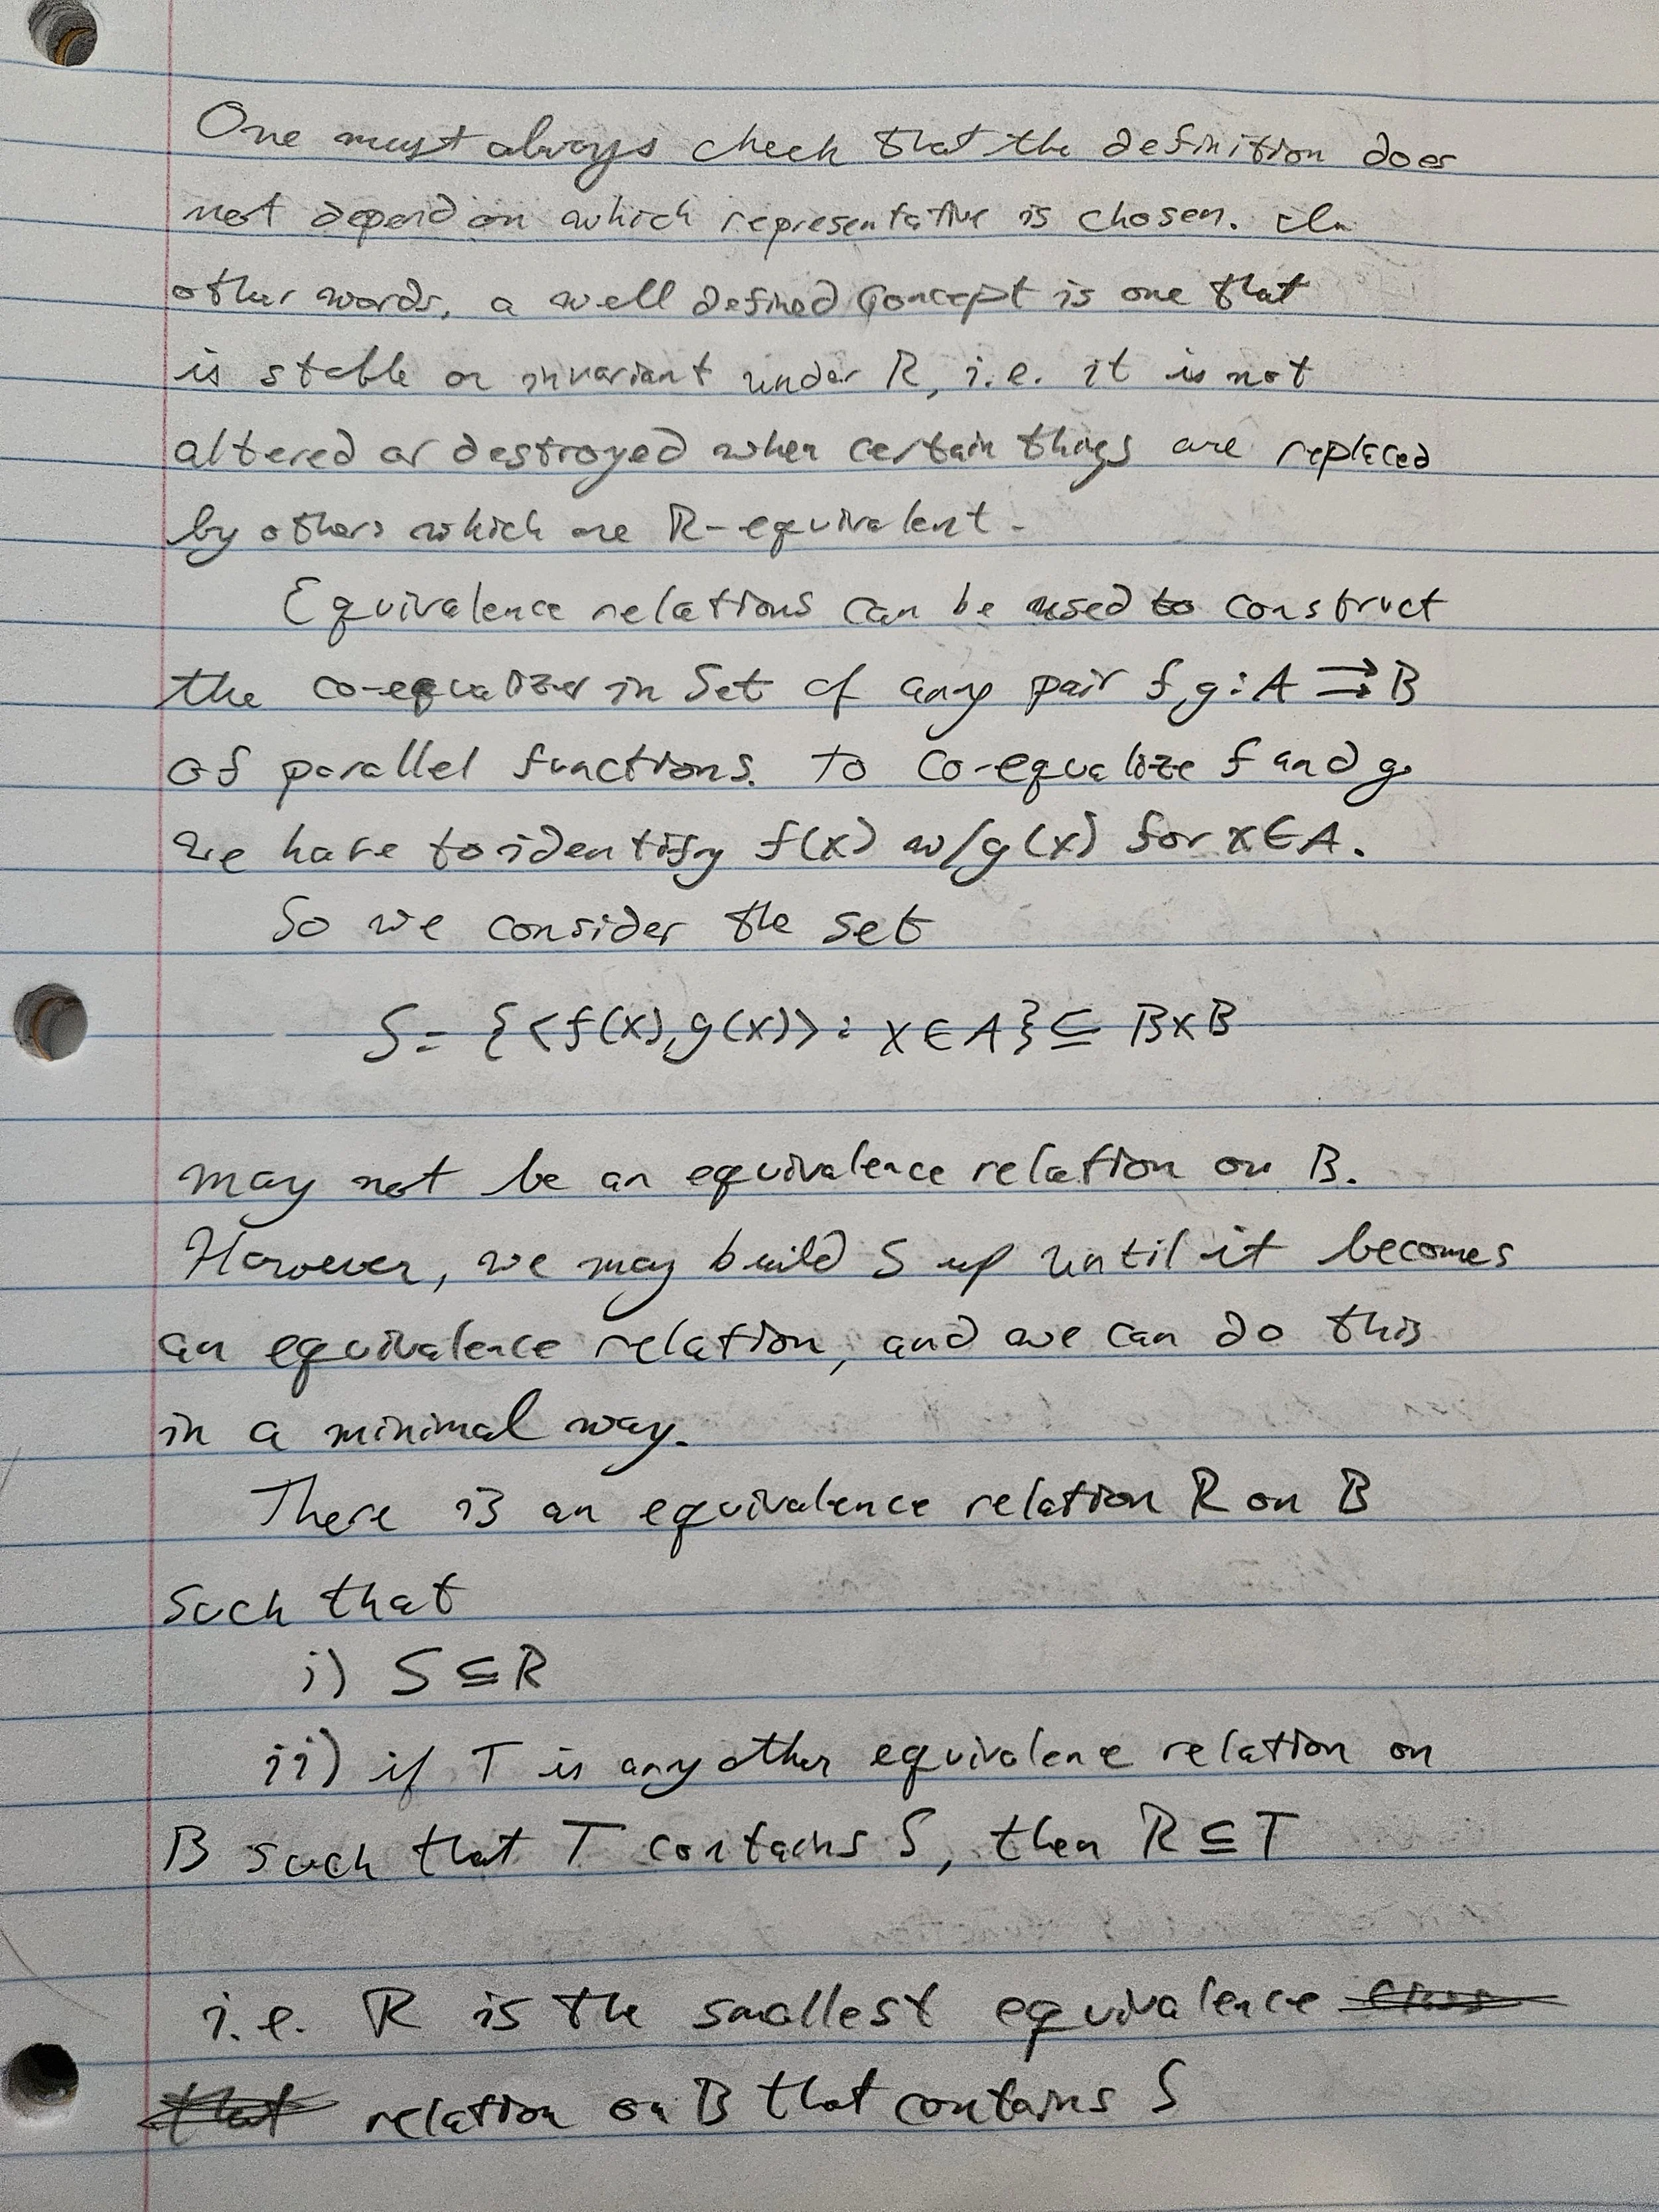 One must always check that the definition does
not depend on which representative is chosen. In
other words, a well defined concept is one that
is stable or invariant under R, i.e. it is not
altered or destroyed when certain things are replaced
by others which are R-equivalent.
Equivalence relations can be used to construct
the co-equalizer in Set of any pair f, g : A ⇉ B
of parallel functions. To co-equalize f and g
we have to identify f(x) w/ g(x) for x ∈ A.
So we consider the set
S = {<f(x), g(x)> : x ∈ A} ⊆ B×B
may not be an equivalence relation on B.
However, we may build S up until it becomes
an equivalence relation, and we can do this
in a minimal way.
There is an equivalence relation R on B
such that
i) S ⊆ R
ii) if T is any other equivalence relation on
B such that T contains S, then R ⊆ T
i.e. R is the smallest equivalence
that relation on B that contains S